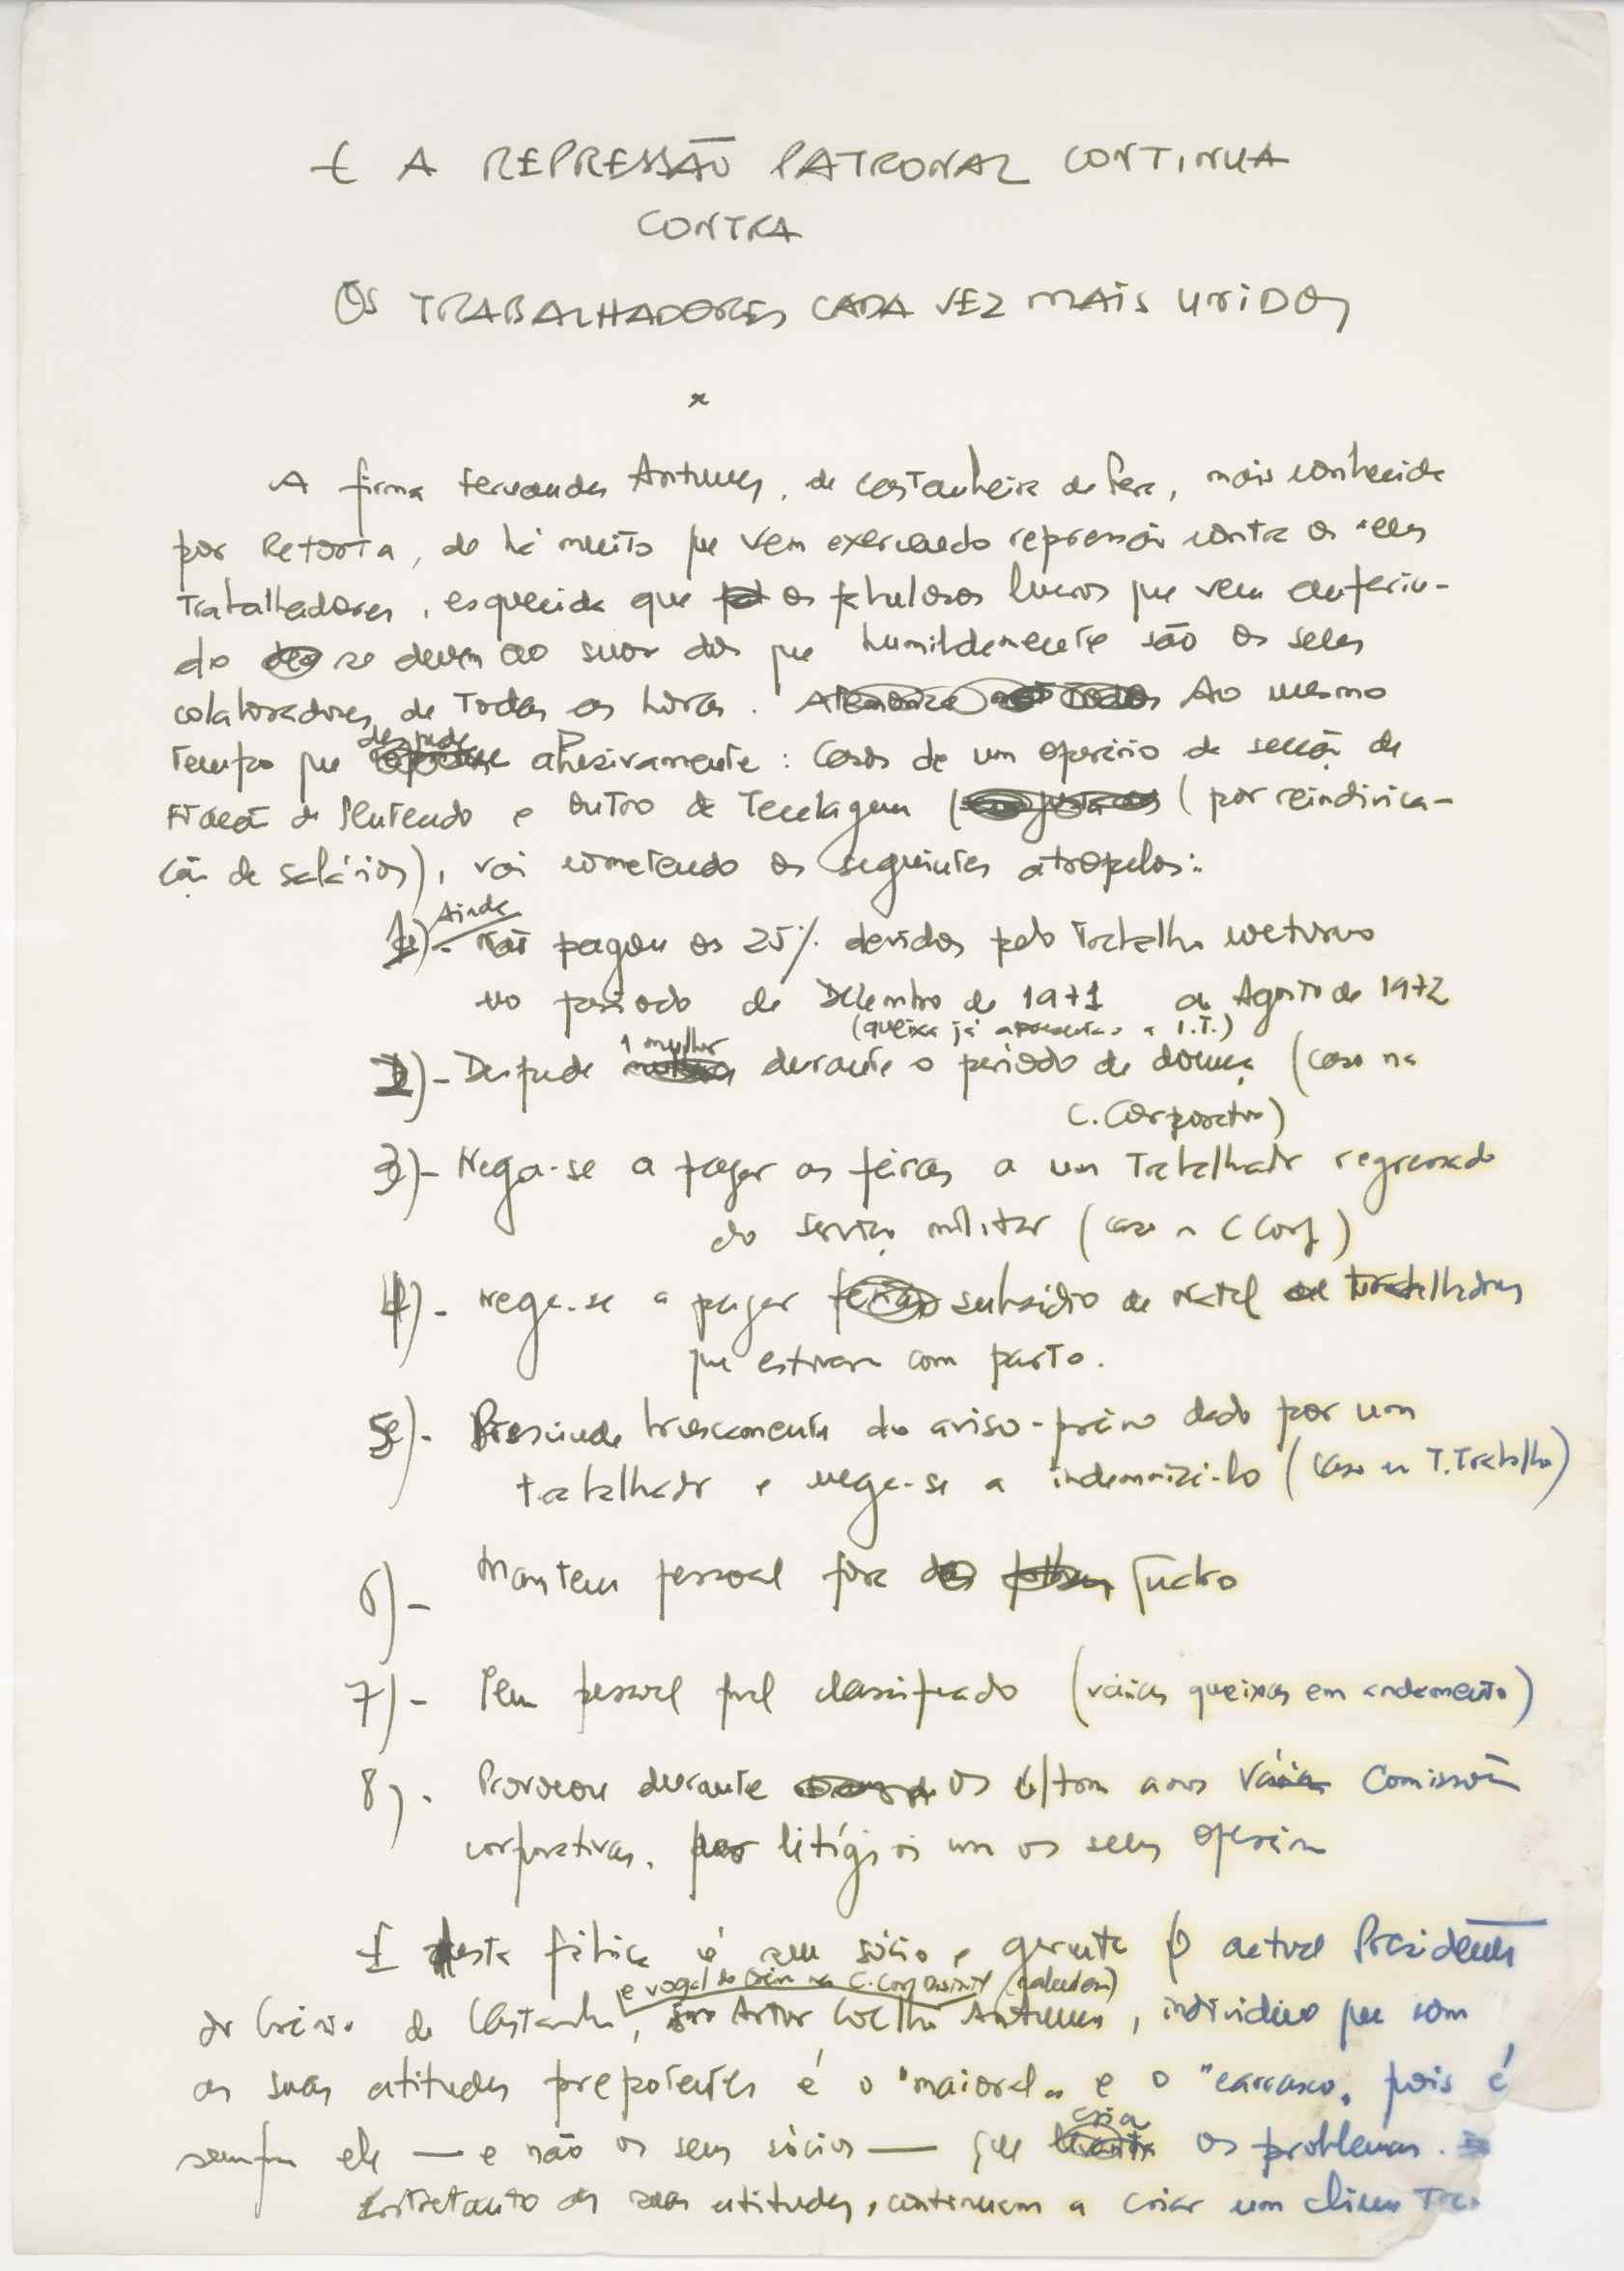 E A REPRESSÃO PATRONAL CONTINUA
CONTRA
OS TRABALHADORES CADA VEZ MAIS UNIDOS
x
A firma Fernandes Antunes, de Castanheira de Pera, mais conhecida
por Retorta, de há muito que vem exercendo repressão contra os seus
trabalhadores, esquecida que os fabulosos lucros que vem auferin-
do se devem ao suor dos que humildemente são os seus
colaboradores de todas as horas. Ao mesmo
tempo que despede abusivamente: Casos de um operário da secção de
Fiação de Penteado e outro de Tecelagem (por reindivica-
ção de salários), vai cometendo os seguintes atropelos:
1)- Ainda não pagou os 25% devidos pelo trabalho nocturno
no periodo de Dezembro de 1971 a Agosto de 1972
(queixa já apresentada a I.T.)
2)- Despede 1 mulher durante o periodo de doença (caso na
C. Corporativa)
3)- Nega-se a pagar as férias a um trabalhador regressado
do serviço militar (caso n C Corp)
4)- Nega-se a pagar subsidio de Natal trabalhadoras
que estivam com parto.
5)- Prescinde bruscamente do aviso-prévio dado por um
trabalhador e nega-se a indemnizá-lo (caso n T. Trabalho)
6)- Mantem pessoal fora quadro
7)- Tem pessoal mal classificado (várias queixas em andamento)
8)- Provocou durante os últim anos várias Comissões
corporativas, por litígios com os seus operários
E desta fábrica é seu sócio e gerente o actual Presidente
do Grémio de Castanheira, e vogal do Grém na C. Corp (galerdoa)
Artur Coelho Antunes, individuo que com
as suas atitudes prepotentes é o "maioral" e o "carrasco", pois é
sempre ele — e não os seus sócios — que cria os problemas.
Entretanto as suas atitudes, continuam a criar um clima